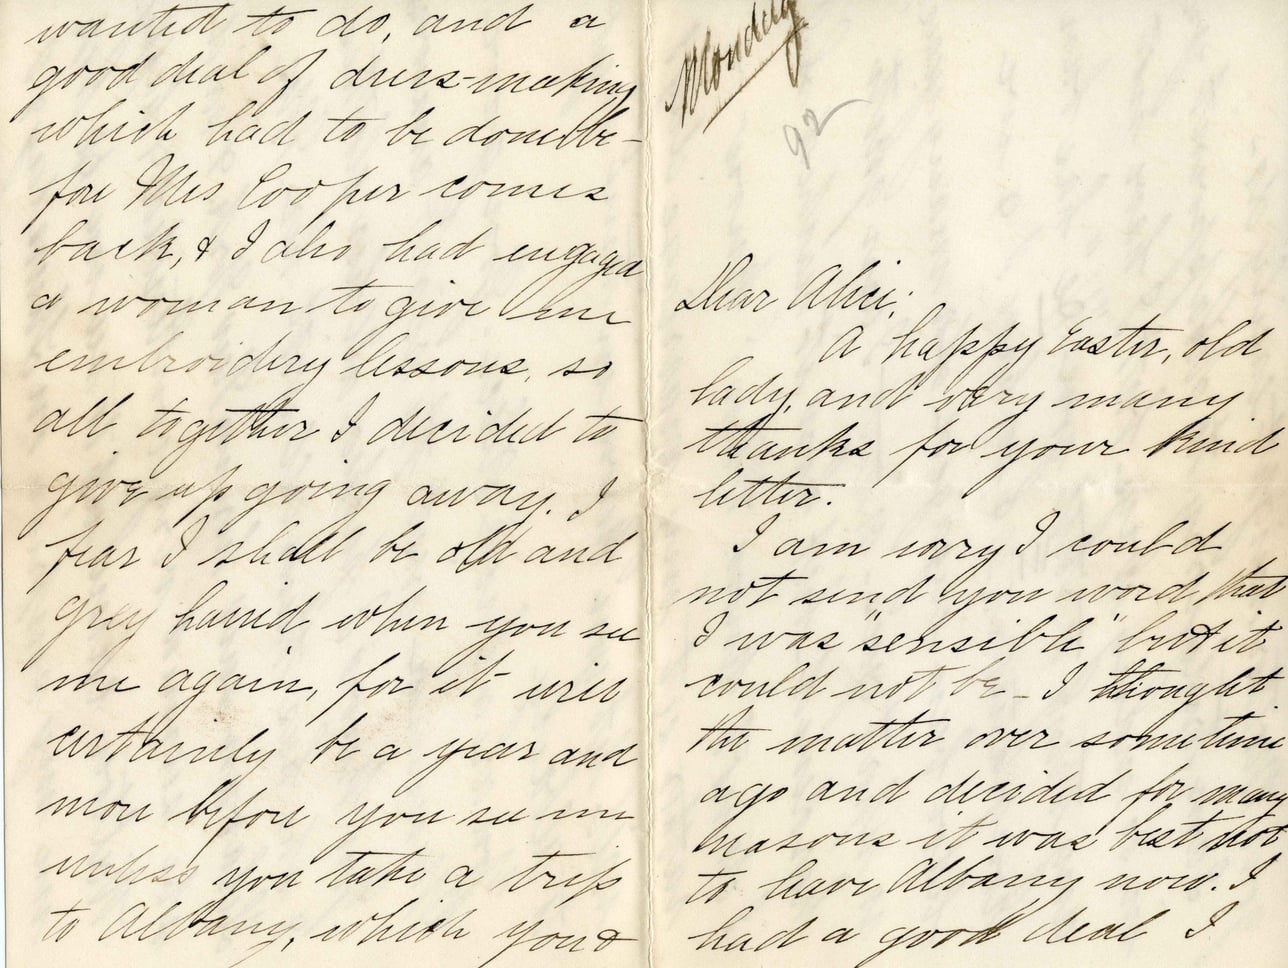 Monday
92
Dear Alice;
A happy Easter, old
lady, and very many
thanks for your kind
letter.
I am sorry I could
not send you word that
I was "sensible" but it
could not be - I thought
the matter over sometime
ago and decided for many
reasons it was best not
to leave Albany now. I
had a good deal I
wanted to do, and a
good deal of dress-making
which had to be done be-
fore Mrs Cooper comes
back, & I also had engaged
a woman to give me
embroidery lessons, so
all together I decided to
give up going away. I
fear I shall be old and
grey haired when you see
me again, for it will
certainly be a year and
more before you see me
unless you take a trip
to Albany, which you